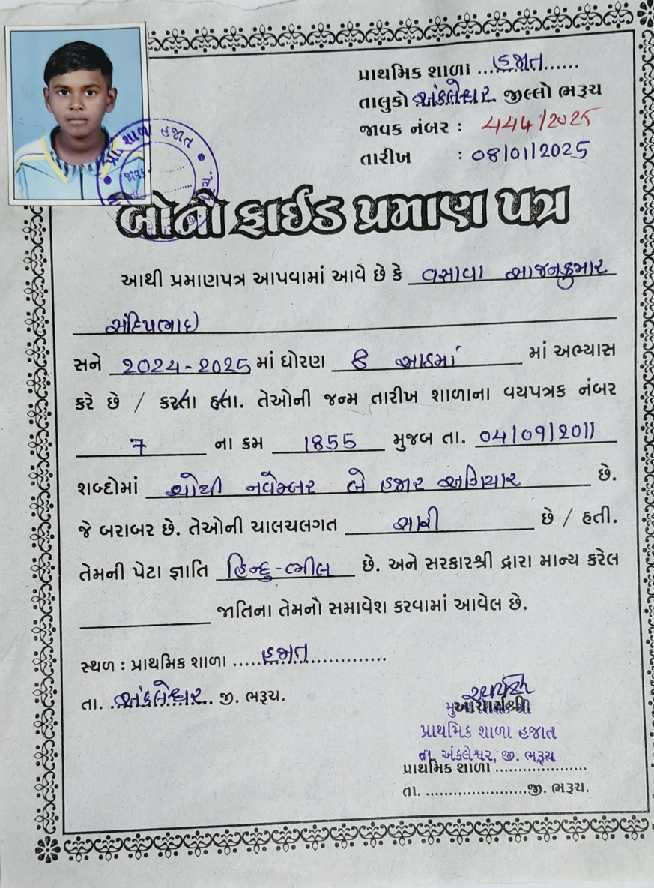 પ્રાથમિક શાળા ...હજાત......
તાલુકો અંકલેશ્વર જીલ્લો ભરૂચ
જાવક નંબર : 444/2025
તારીખ : 08/01/2025
પ્રા. શાળા હજાત
બોનોફાઈડ પ્રમાણ પત્ર
આથી પ્રમાણપત્ર આપવામાં આવે છે કે વસાવા સાજનકુમાર
સંદિપભાઇ
સને 2024-2025 માં ધોરણ 8 આઠમાં માં અભ્યાસ
કરે છે / કરતા હતા. તેઓની જન્મ તારીખ શાળાના વયપત્રક નંબર
7 ના ક્રમ 1855 મુજબ તા. 04/09/2011
શબ્દોમાં ચોથી નવેમ્બર બે હજાર અગિયાર છે.
જે બરાબર છે. તેઓની ચાલચલગત સારી છે / હતી.
તેમની પેટા જ્ઞાતિ હિન્દુ-ભીલ છે. અને સરકારશ્રી દ્વારા માન્ય કરેલ
જાતિના તેમનો સમાવેશ કરવામાં આવેલ છે.
સ્થળ : પ્રાથમિક શાળા .....હજાત..............
તા. ..અંકલેશ્વર.. જી. ભરૂચ.
મુખ્યશિક્ષક
આચાર્યશ્રી
પ્રાથમિક શાળા હજાત
તા. અંકલેશ્વર, જી. ભરૂચ
પ્રાથમિક શાળા ....................
તા. ......................જી. ભરૂચ.